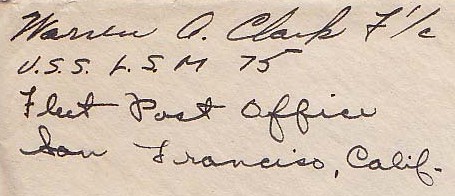 Warren A. Clark F 1/c
U.S.S. L.S.M 75
Fleet Post Office
San Francisco, Calif.